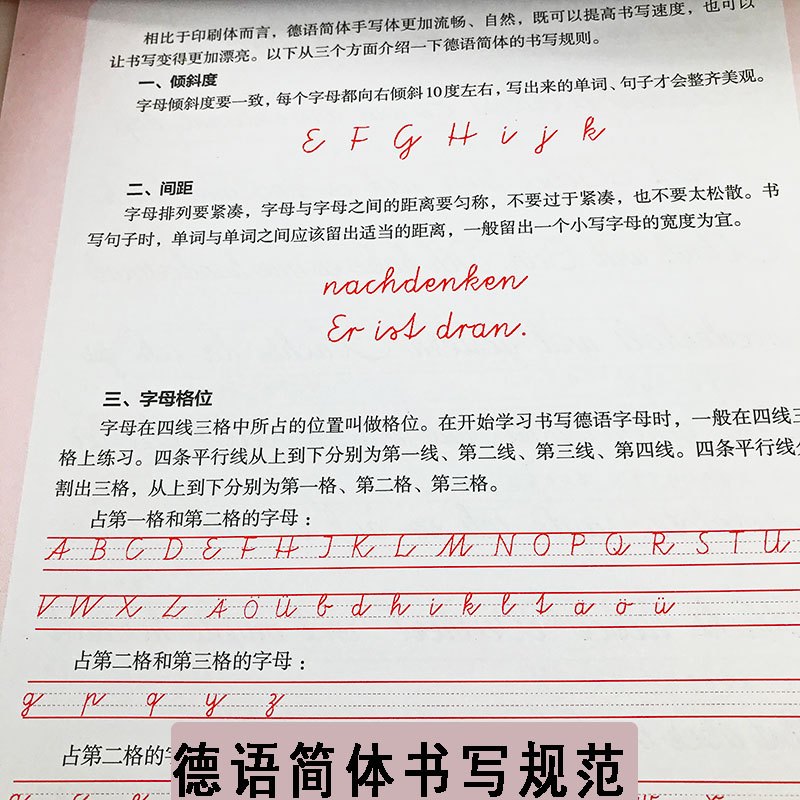 相比于印刷体而言，德语简体手写体更加流畅、自然，既可以提高书写速度，也可以
让书写变得更加漂亮。以下从三个方面介绍一下德语简体的书写规则。
一、倾斜度
字母倾斜度要一致，每个字母都向右倾斜10度左右，写出来的单词、句子才会整齐美观。
E F G H i j k
二、间距
字母排列要紧凑，字母与字母之间的距离要匀称，不要过于紧凑，也不要太松散。书
写句子时，单词与单词之间应该留出适当的距离，一般留出一个小写字母的宽度为宜。
nachdenken
Er ist dran.
三、字母格位
字母在四线三格中所占的位置叫做格位。在开始学习书写德语字母时，一般在四线三
格上练习。四条平行线从上到下分别为第一线、第二线、第三线、第四线。四条平行线分
割出三格，从上到下分别为第一格、第二格、第三格。
占第一格和第二格的字母：
A B C D E F H J K L M N O P Q R S T U
V W X Z Ä Ö Ü b d h i k l t ä ö ü
占第二格和第三格的字母：
g p q y z
占第二格的
德语简体书写规范